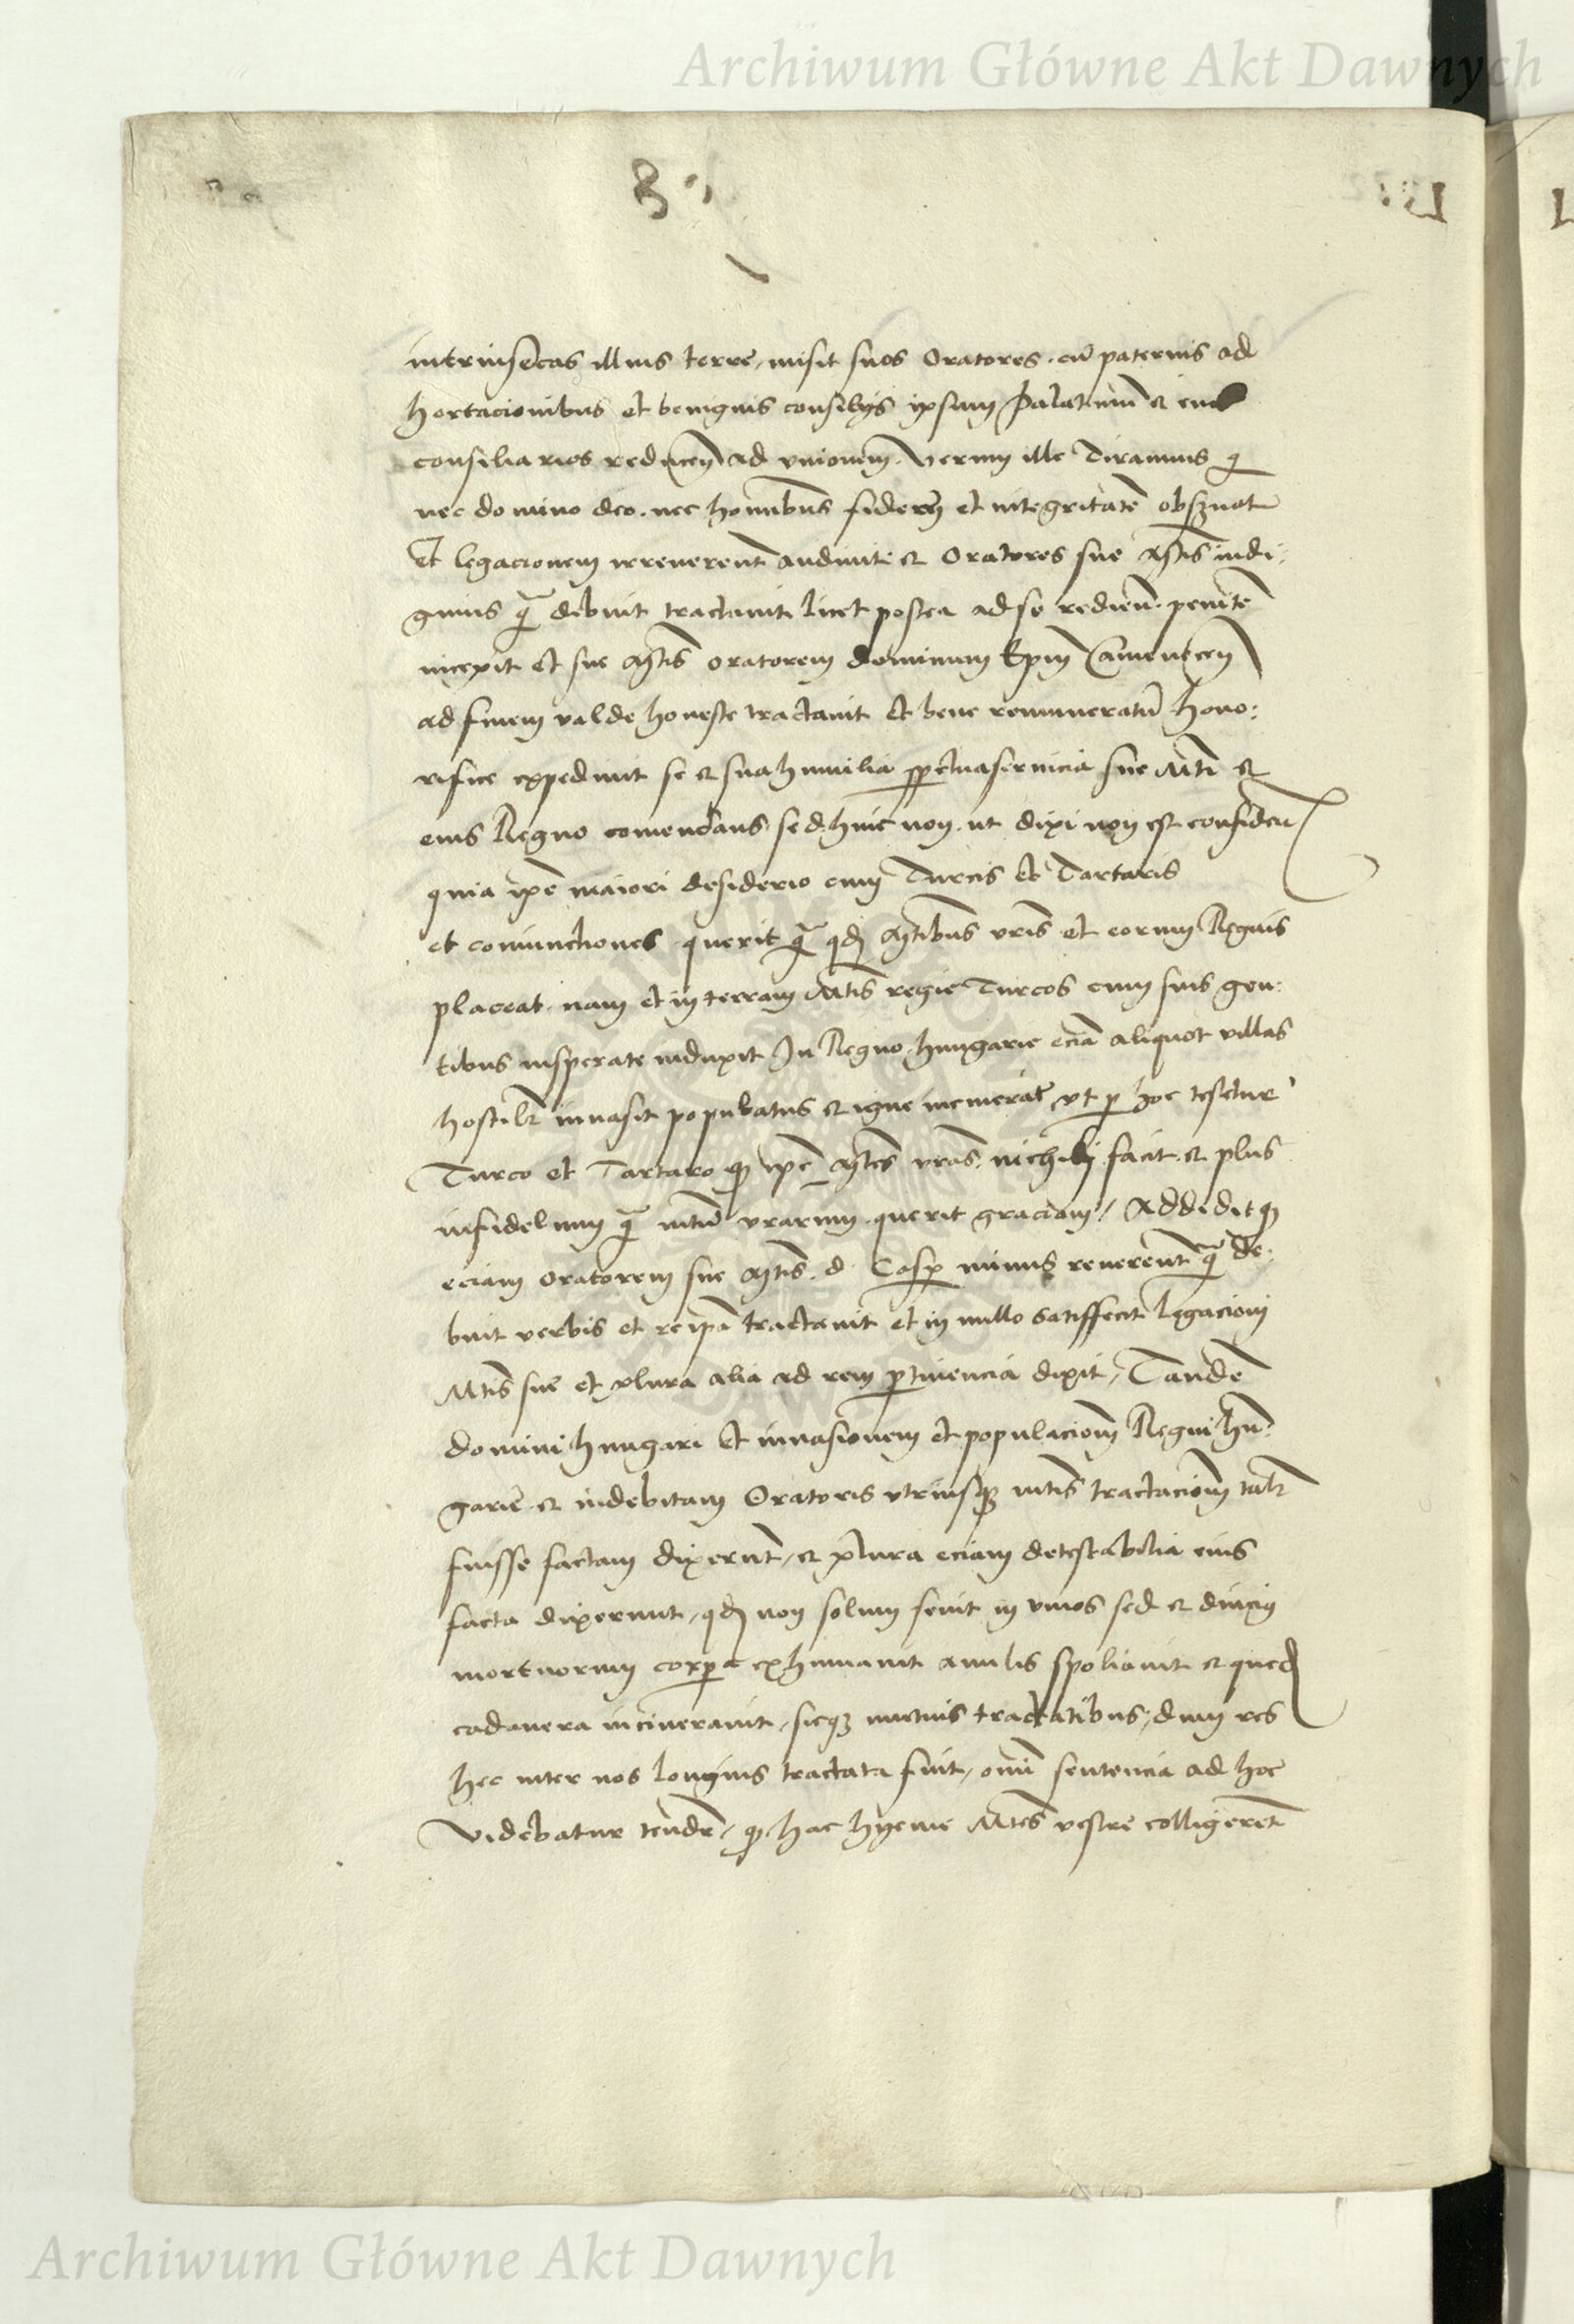 Archiwum Główne Akt Dawnych
intrinsecas illius terre, misit suos Oratores cũ paternis ad
hortacionibus et benignis consilijs ipsum Palatinũ et eius
consiliarios reducen̄ ad vnionem. Verum ille Tirannus q̇
nec domino deo, nec hominibus fidem et integritatē obseruat
Et legacionem irreuerent̄ audiuit et Oratores sue Mtis indi:
gnius q̄ debuit tractauit licet postea ad se redien̄. penitē
incepit et sue Mtis oratorem dominum Epm̄ Camenecen̄
ad finem valde honeste tractauit et bene remuneratũ hono:
rifice expediuit se et sua humilia ppetua seruicia sue Mti et
eius Regno comendans sed huic non ut dixi non est confiden̄
quia ipē maiori desiderio cum Turcis et Tartaris
et coniunctiones querit q̄ qd̄ Mtibus vris et eorum Regnis
placeat. nam et in terram Mtis regie Turcos cum suis gen:
tibus insperate induxit In Regno hungarie eciã aliquot villas
hostilr̄ inuasit populatus et igne
Turco et Tartaro qȝ ipē Mtes vras nichili facit et plus
infidelium q̄ mtũ vrarum querit graciam / Addidit qȝ
eciam oratorem sue Mtis d. Casp̄ minus reuerent̄ q̄ de:
buit verbis et re ipã tractauit et in nullo satisffecit legacioni
Mtis sue et plura alia ad rem ptinencia dixit, Tandē
domini hungari et inuasionem et populacionē Regni hũ:
garie et indebitam Oratoris vtriusqȝ mtis tractacionē talr̄
fuisse factam dixerũt, et plura eciam detestabilia eius
facta dixerunt, qd̄ non solum seuit in viuos sed et
mortuorum corpa exhumauit anulis spoliauit et qued̄
cadauera incinerauit, sicqȝ mutuis tractatibus, dum res
hec inter nos longius tractata fuit, oīm sentencia ad hoc
videbatur tendē̄, qȝ hac hyeme Mtes vestre colligerēt
Archiwum Główne Akt Dawnych